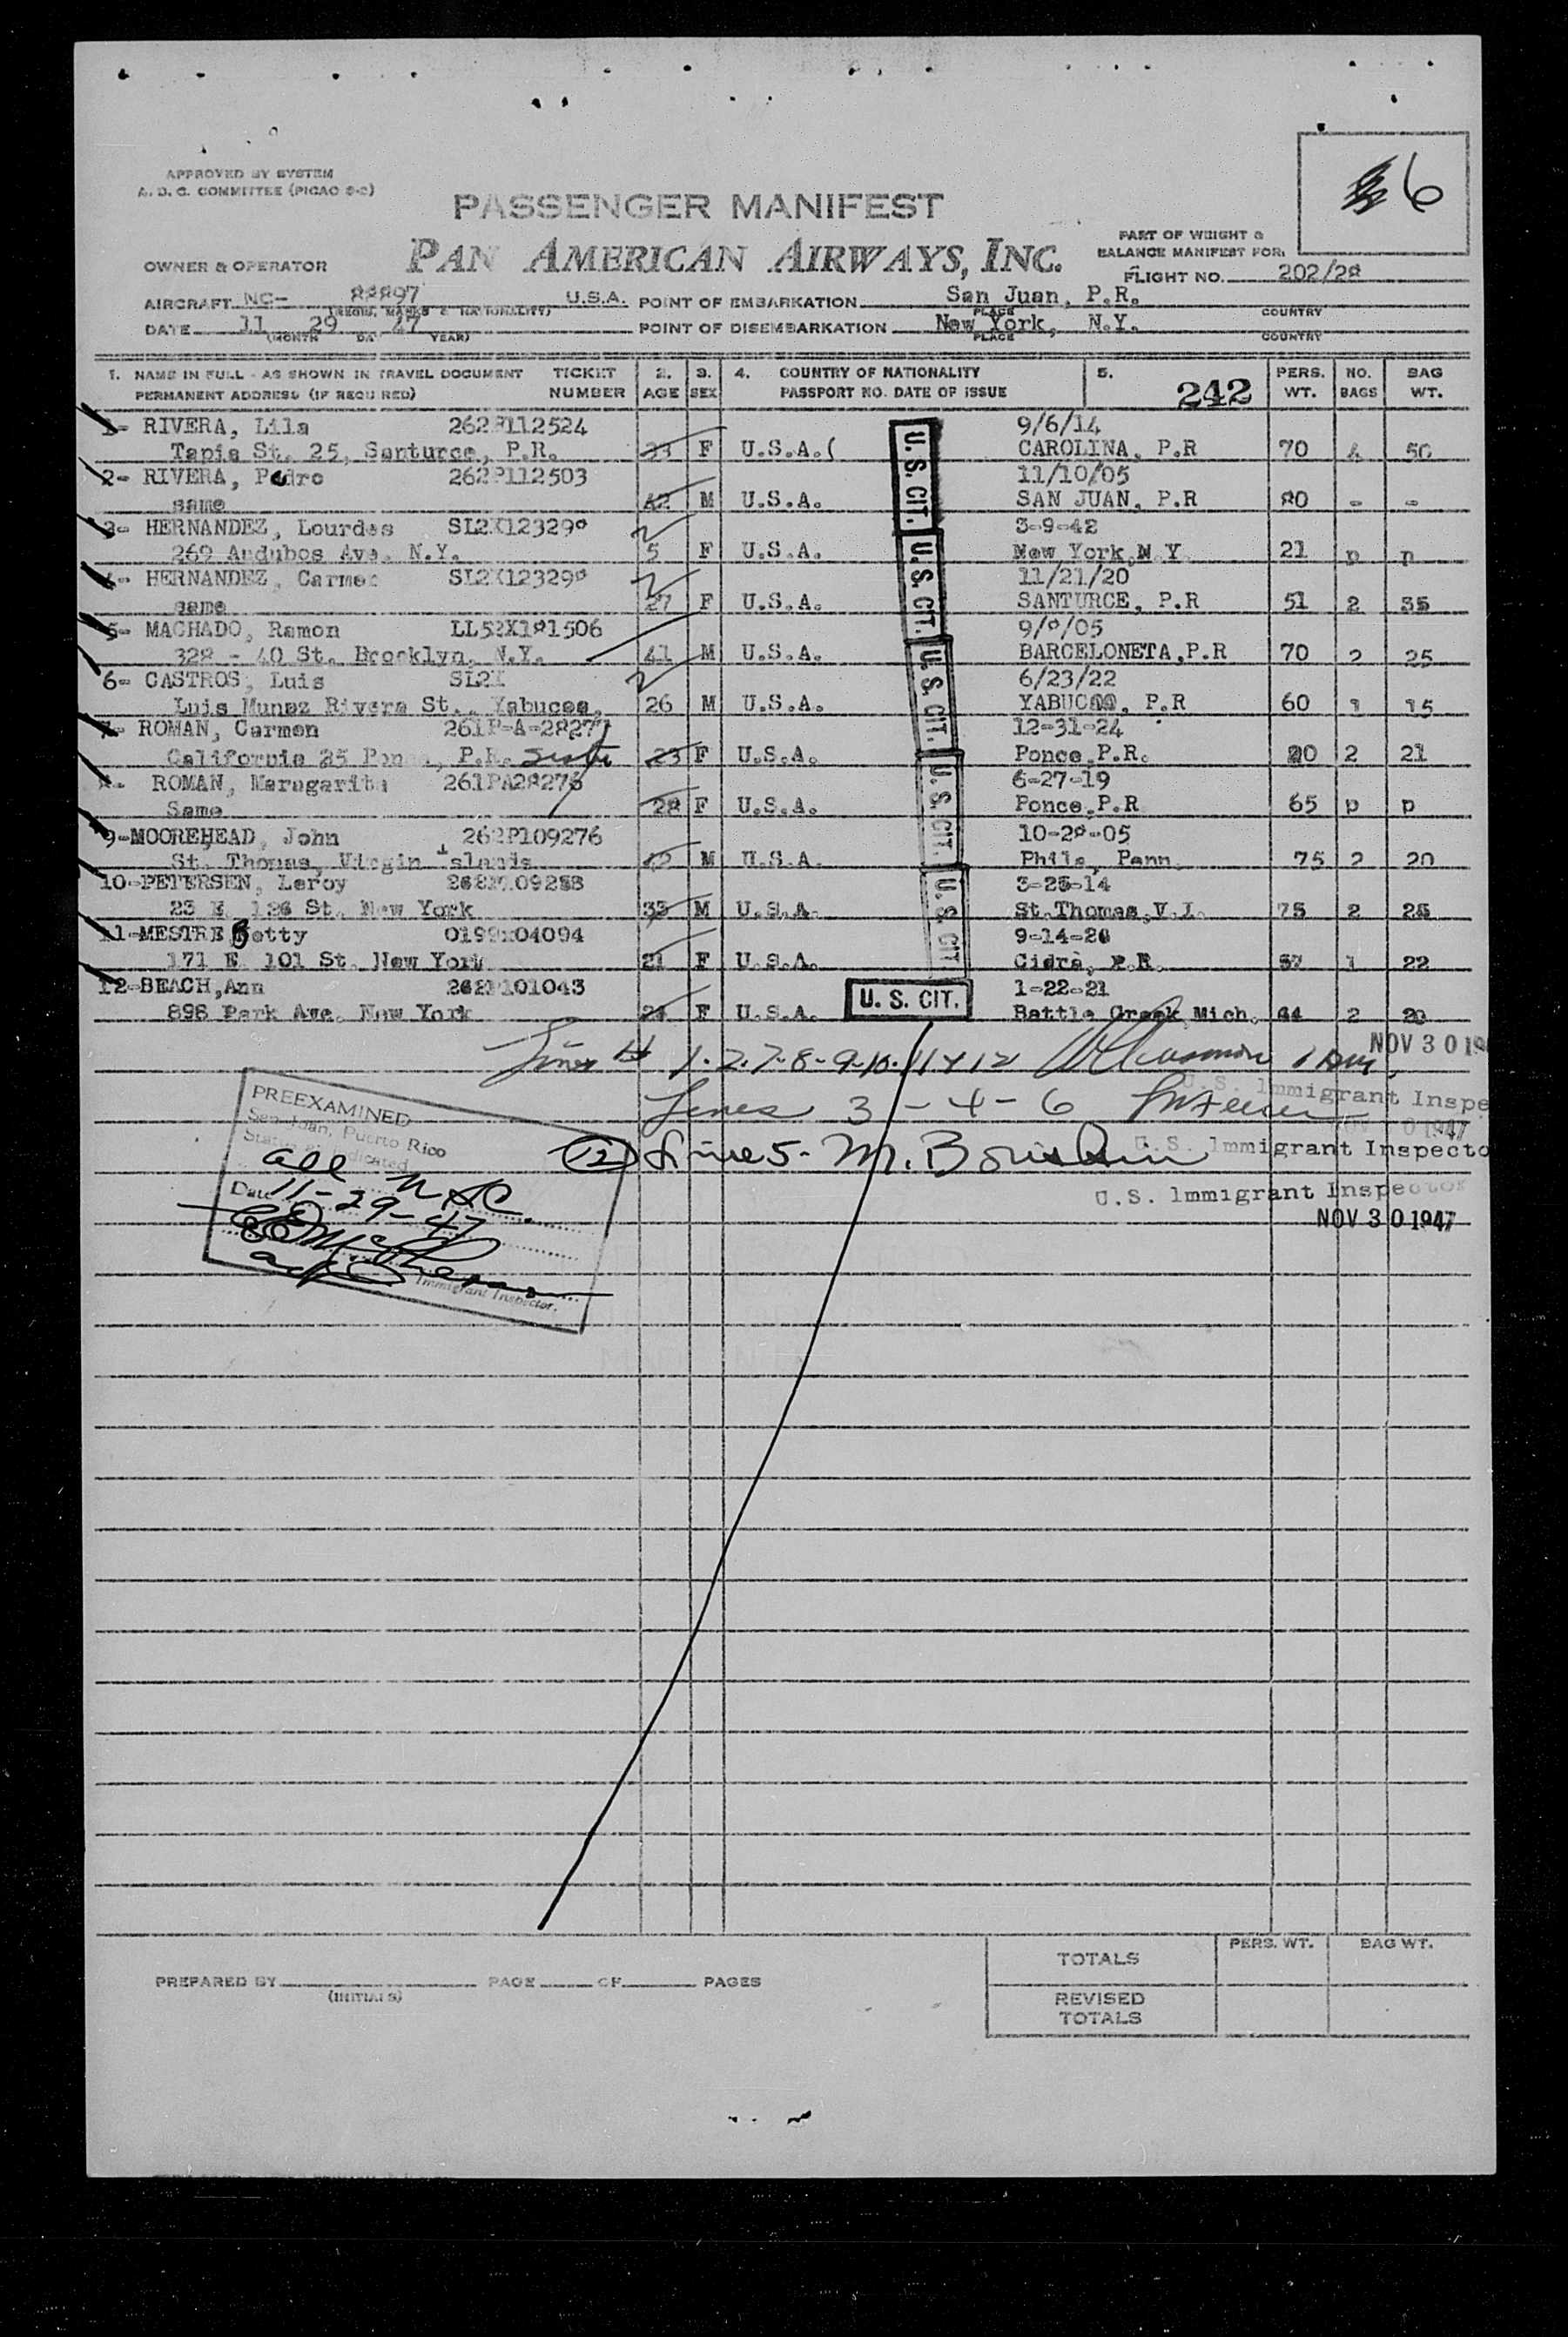 6
APPROVED BY SYSTEM
A. D. C. COMMITTEE (PICAO 8-2)
PASSENGER MANIFEST
PAN AMERICAN AIRWAYS, INC.
PART OF WEIGHT &
BALANCE MANIFEST FOR:
OWNER & OPERATOR
FLIGHT NO. 202/28
AIRCRAFT NC- 88897 U.S.A. POINT OF EMBARKATION San Juan, P.R.
(REGIS. MARKS & NATIONALITY) PLACE COUNTRY
DATE 11 29 47 POINT OF DISEMBARKATION New York, N.Y.
(MONTH DAY YEAR) PLACE COUNTRY
1. NAME IN FULL - AS SHOWN IN TRAVEL DOCUMENT TICKET 2. 3. 4. COUNTRY OF NATIONALITY 5. PERS. NO. BAG
PERMANENT ADDRESS (IF REQUIRED) NUMBER AGE SEX PASSPORT NO. DATE OF ISSUE 242 WT. BAGS WT.
1- RIVERA, Lila 262P112524 9/6/14
Tapia St. 25, Santurce, P.R. 33 F U.S.A.( CAROLINA, P.R 70 4 50
2- RIVERA, Pedro 262P112503 11/10/05
same 42 M U.S.A. SAN JUAN, P.R 80 - -
3- HERNANDEZ, Lourdes SL2X123298 3-9-42
269 Audubos Ave. N.Y. 5 F U.S.A. New York,N.Y. 21 p p
4- HERNANDEZ, Carmen SL2X123298 11/21/20
same 27 F U.S.A. SANTURCE, P.R 51 2 35
5- MACHADO, Ramon LL52X181506 9/8/05
328 - 40 St. Brooklyn, N.Y. 41 M U.S.A. BARCELONETA,P.R 70 2 25
6- CASTROS, Luis SL2X 6/23/22
Luis Munaz Rivera St., Yabucoa, 26 M U.S.A. YABUCOA, P.R 60 1 15
7- ROMAN, Carmen 261P-A-28277 12-31-24
California 25 Ponce, P.R. Sister 23 F U.S.A. Ponce,P.R. 20 2 21
8- ROMAN, Maragarita 261PA28276 6-27-19
Same 28 F U.S.A. Ponce,P.R 65 p p
9-MOOREHEAD, John 262P109276 10-28-05
St. Thomas, Virgin Islands 42 M U.S.A. Phila, Penn. 75 2 20
10-PETERSEN, Leroy 3-25-14
23 E. 126 St. New York 33 M U.S.A. St.Thomas,V.I. 75 2 25
11-MESTRE Betty 9-14-26
171 E 101 St. New York 21 F U.S.A. Cidra, P.R. 57 1 22
12-BEACH,Ann 262P101043 1-22-21
898 Park Ave. New York F U.S.A. Battle Creek Mich. 44 2 20
U. S. CIT.
U. S. CIT.
U. S. CIT.
U. S. CIT.
U. S. CIT.
U. S. CIT.
Lines 1. 2. 7. 8 - 9. 10. 11 & 12
NOV 30 19
U.S. Immigrant Inspe
Lines 3 - 4 - 6
1947
(12) Line 5 -
U.S. Immigrant Inspecto
U.S. Immigrant Inspector
NOV 30 1947
PREEXAMINED
San Juan, Puerto Rico
Status Indicated
all
Date 11-29-47
Immigrant Inspector.
PREPARED BY PAGE OF PAGES
(INITIALS)
PERS. WT. BAG WT.
TOTALS
REVISED
TOTALS